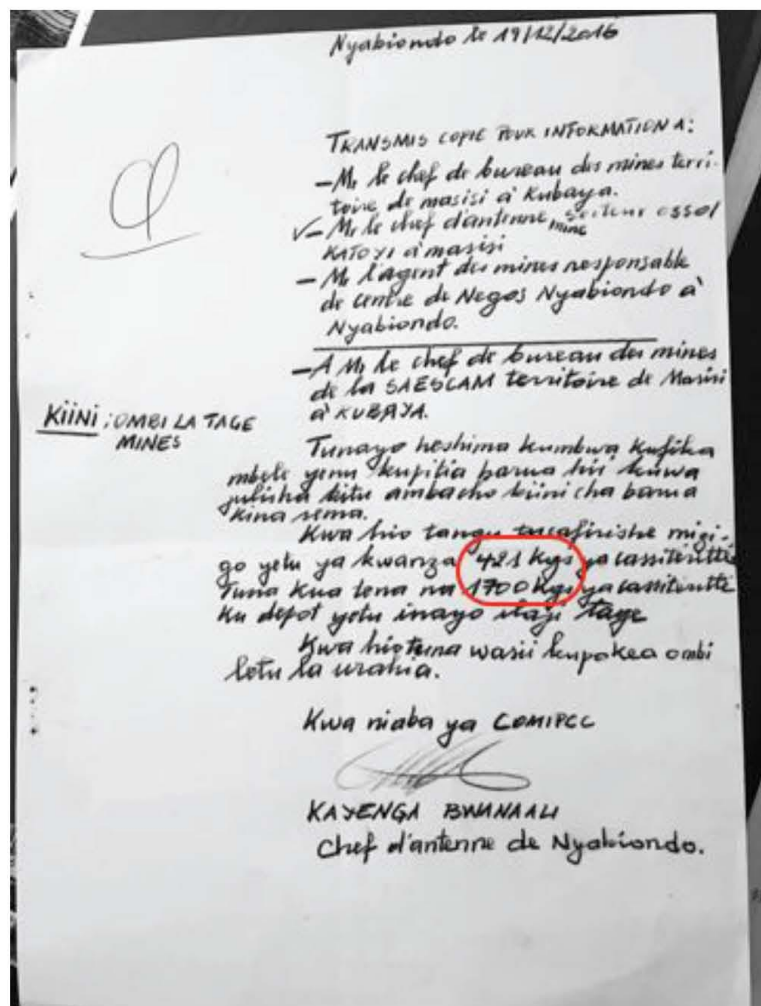 Nyabiondo le 19/12/2016
TRANSMIS COPIE POUR INFORMATION A:
- Mr le chef de bureau des mines terri-
toire de masisi à Kubaya.
✓- Mr le chef d'antenne
mine
KATOYI à masisi
- Mr l'agent des mines responsable
de centre de Negos Nyabiondo à
Nyabiondo.
- A Mr le chef de bureau des mines
de la SAESCAM territoire de Masisi
à KUBAYA.
KIINI : OMBI LA TAGE
MINES
Tunayo heshima kumbwa kufika
mbele yenu kupitia barua hii kuwa
julisha kitu ambacho kiini cha barua
kina sema.
Kwa hio tangu tusafirishe mizi-
go yetu ya kwanza 421 Kgs ya cassiteritte
Tuna kua tena na 1700 Kgs ya cassiteritte
Ku depot yetu inayo itaji tage
Kwa hio tuna wasii kupokea ombi
letu la urahia.
Kwa niaba ya COMIPCC
KAYENGA BWANAALI
Chef d'antenne de Nyabiondo.